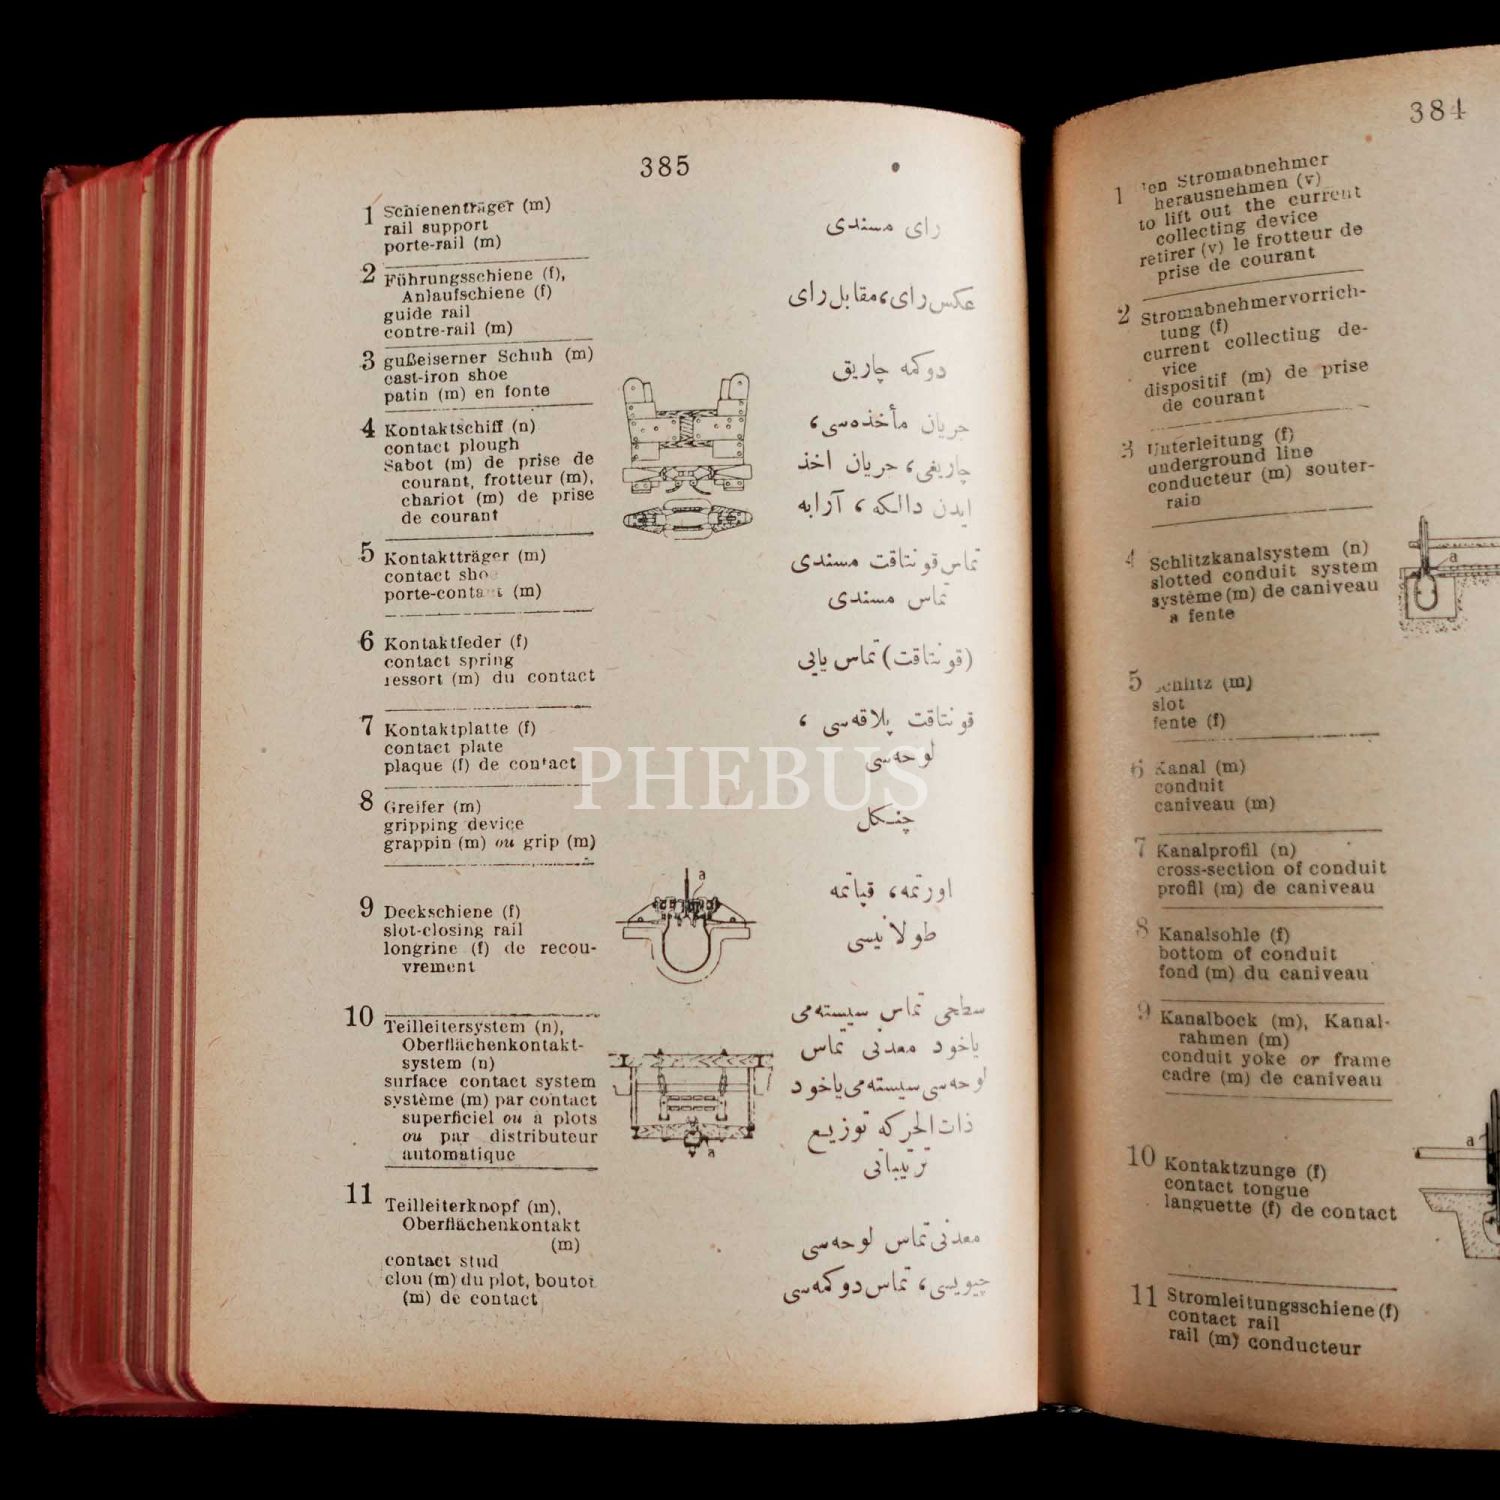 385
1 Schienenträger (m)
rail support
porte-rail (m)
رای مسندی
2 Führungsschiene (f),
Anlaufschiene (f)
guide rail
contre-rail (m)
عکس رای، مقابل رای
3 gußeiserner Schuh (m)
cast-iron shoe
patin (m) en fonte
دوکمه چاریق
4 Kontaktschiff (n)
contact plough
Sabot (m) de prise de
courant, frotteur (m),
chariot (m) de prise
de courant
جریان مأخذه‌سی،
چاریغی، جریان اخذ
ایدن دالکه، آرابه
5 Kontaktträger (m)
contact shoe
porte-contact (m)
تماس قونتاقت مسندی
تماس مسندی
6 Kontaktfeder (f)
contact spring
ressort (m) du contact
(قونتاقت) تماس یایی
7 Kontaktplatte (f)
contact plate
plaque (f) de contact
قونتاقت پلاقه‌سی،
لوحه‌سی
8 Greifer (m)
gripping device
grappin (m) ou grip (m)
چنکل
9 Deckschiene (f)
slot-closing rail
longrine (f) de recou-
vrement
a
اورتمه، قپاتمه
طولانیسی
10 Teilleitersystem (n),
Oberflächenkontakt-
system (n)
surface contact system
système (m) par contact
superficiel ou à plots
ou par distributeur
automatique
a
سطحی تماس سیستمه‌می
یاخود معدنی تماس
لوحه‌سی سیستمه‌می یاخود
ذات‌الحرکه توزیع
ترتیباتی
11 Teilleiterknopf (m),
Oberflächenkontakt
(m)
contact stud
clou (m) du plot, bouton
(m) de contact
معدنی تماس لوحه‌سی
چیویسی، تماس دوکمه‌سی
PHEBUS
384
1 Stromabnehmer
herausnehmen (v)
to lift out the current
collecting device
retirer (v) le frotteur de
prise de courant
2 Stromabnehmervorrich-
tung (f)
current collecting de-
vice
dispositif (m) de prise
de courant
3 Unterleitung (f)
underground line
conducteur (m) souter-
rain
4 Schlitzkanalsystem (n)
slotted conduit system
système (m) de caniveau
a fente
a
5 Schlitz (m)
slot
fente (f)
6 Kanal (m)
conduit
caniveau (m)
7 Kanalprofil (n)
cross-section of conduit
profil (m) de caniveau
8 Kanalsohle (f)
bottom of conduit
fond (m) du caniveau
9 Kanalbock (m), Kanal-
rahmen (m)
conduit yoke or frame
cadre (m) de caniveau
10 Kontaktzunge (f)
contact tongue
languette (f) de contact
a
11 Stromleitungsschiene (f)
contact rail
rail (m) conducteur